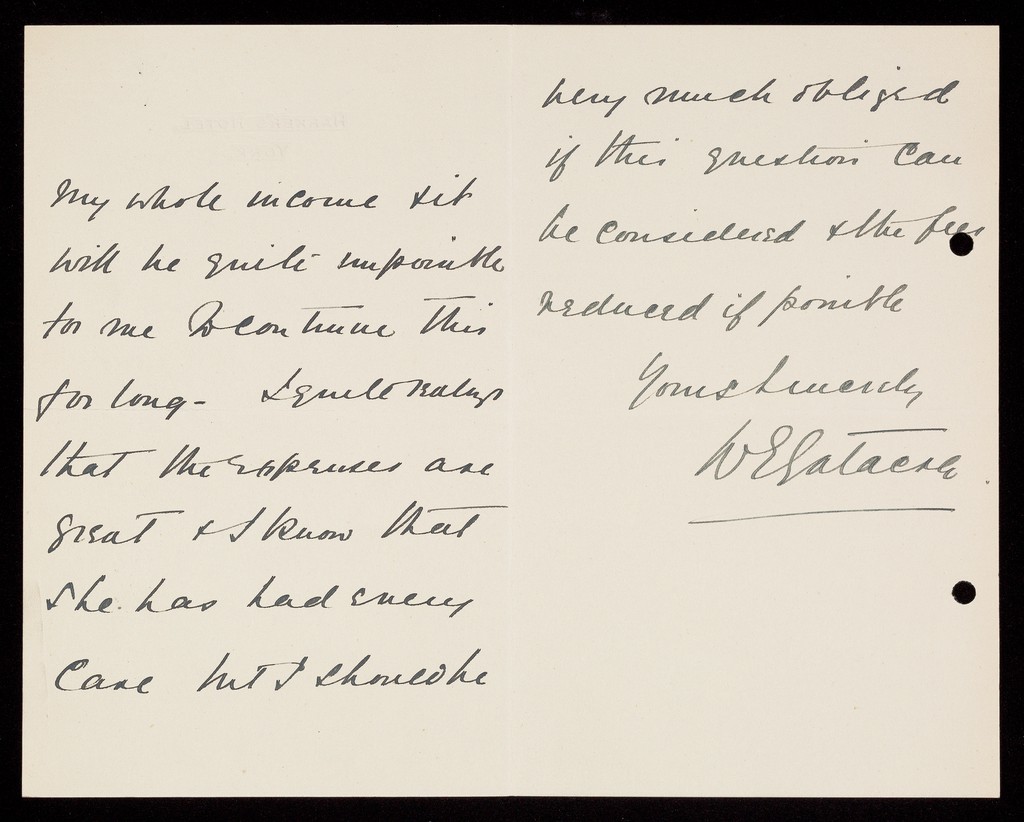 My whole income & it
will be quite impossible
for me to continue this
for long - I quite realize
that the expenses are
great & I know that
she has had every
care but I should be
very much obliged
if this question can
be considered & the fees
reduced if possible
Yours sincerely
W E Gatacre